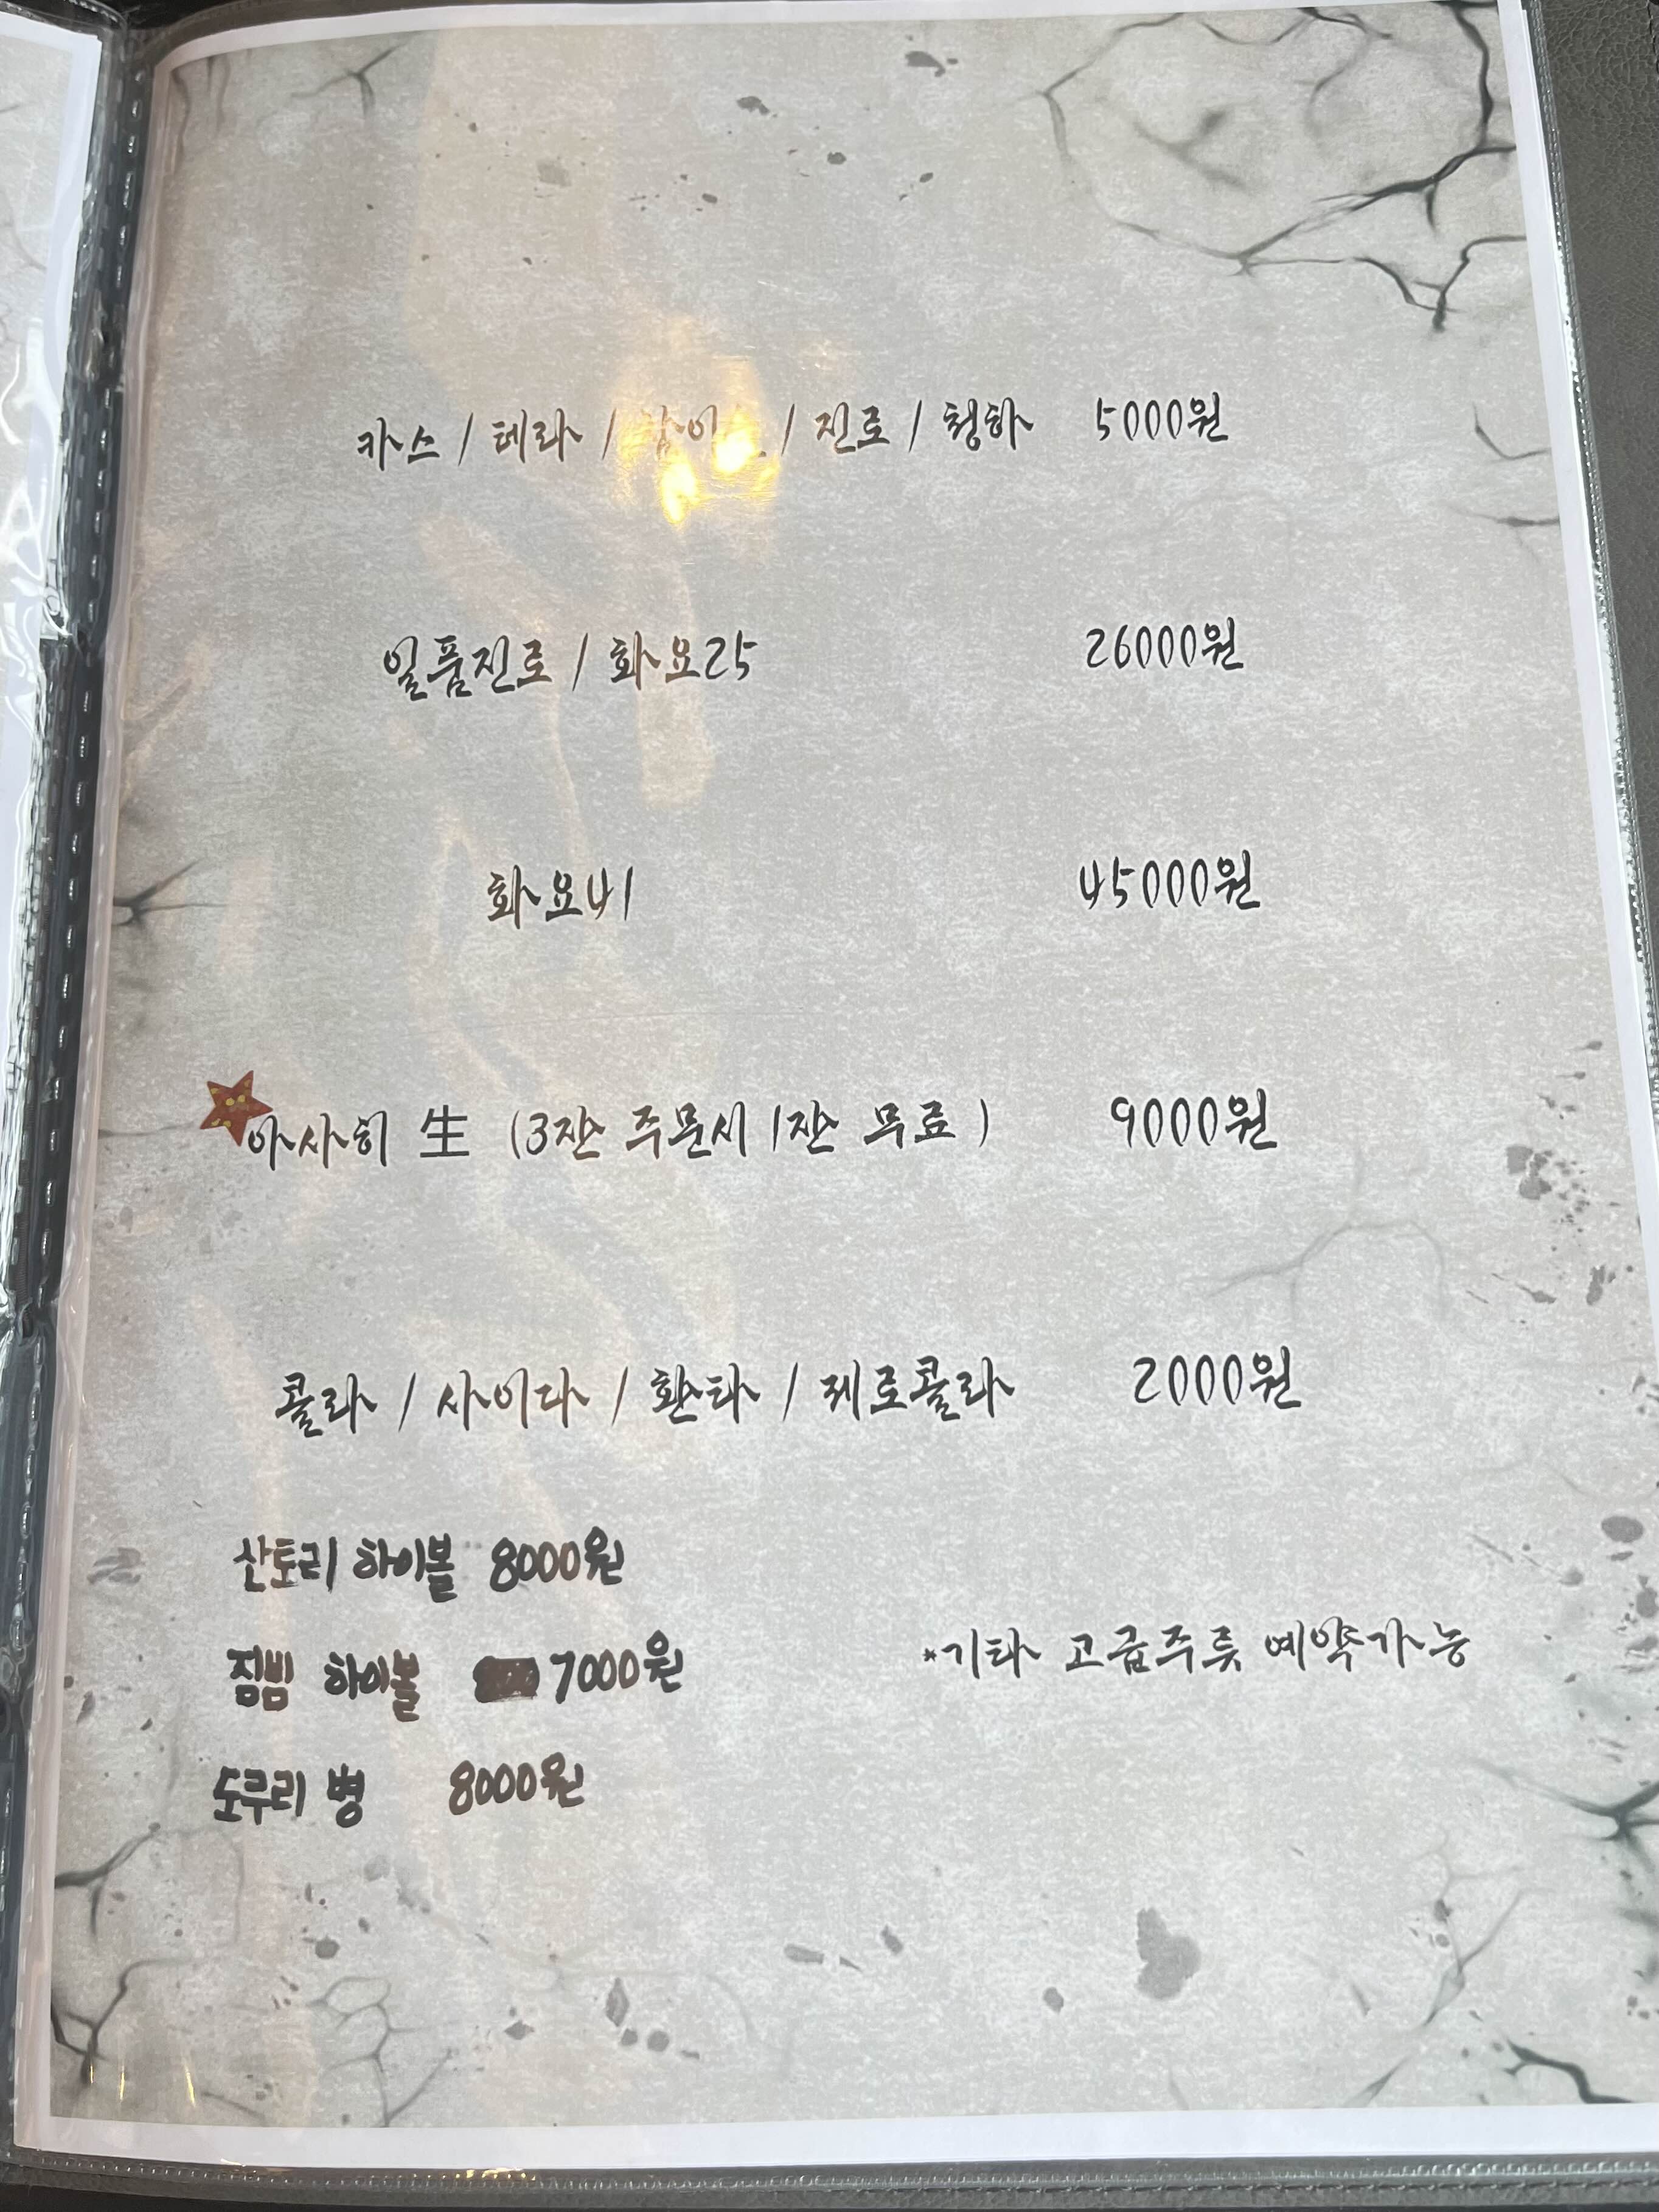 카스 / 테라 / 참이슬 / 진로 / 청하 5000원
일품진로 / 화요25 26000원
화요41 45000원
아사히 生 (3잔 주문시 1잔 무료) 9000원
콜라 / 사이다 / 환타 / 제로콜라 2000원
산토리 하이볼 8000원
짐빔 하이볼 7000원
*기타 고급주류 예약가능
도쿠리 병 8000원